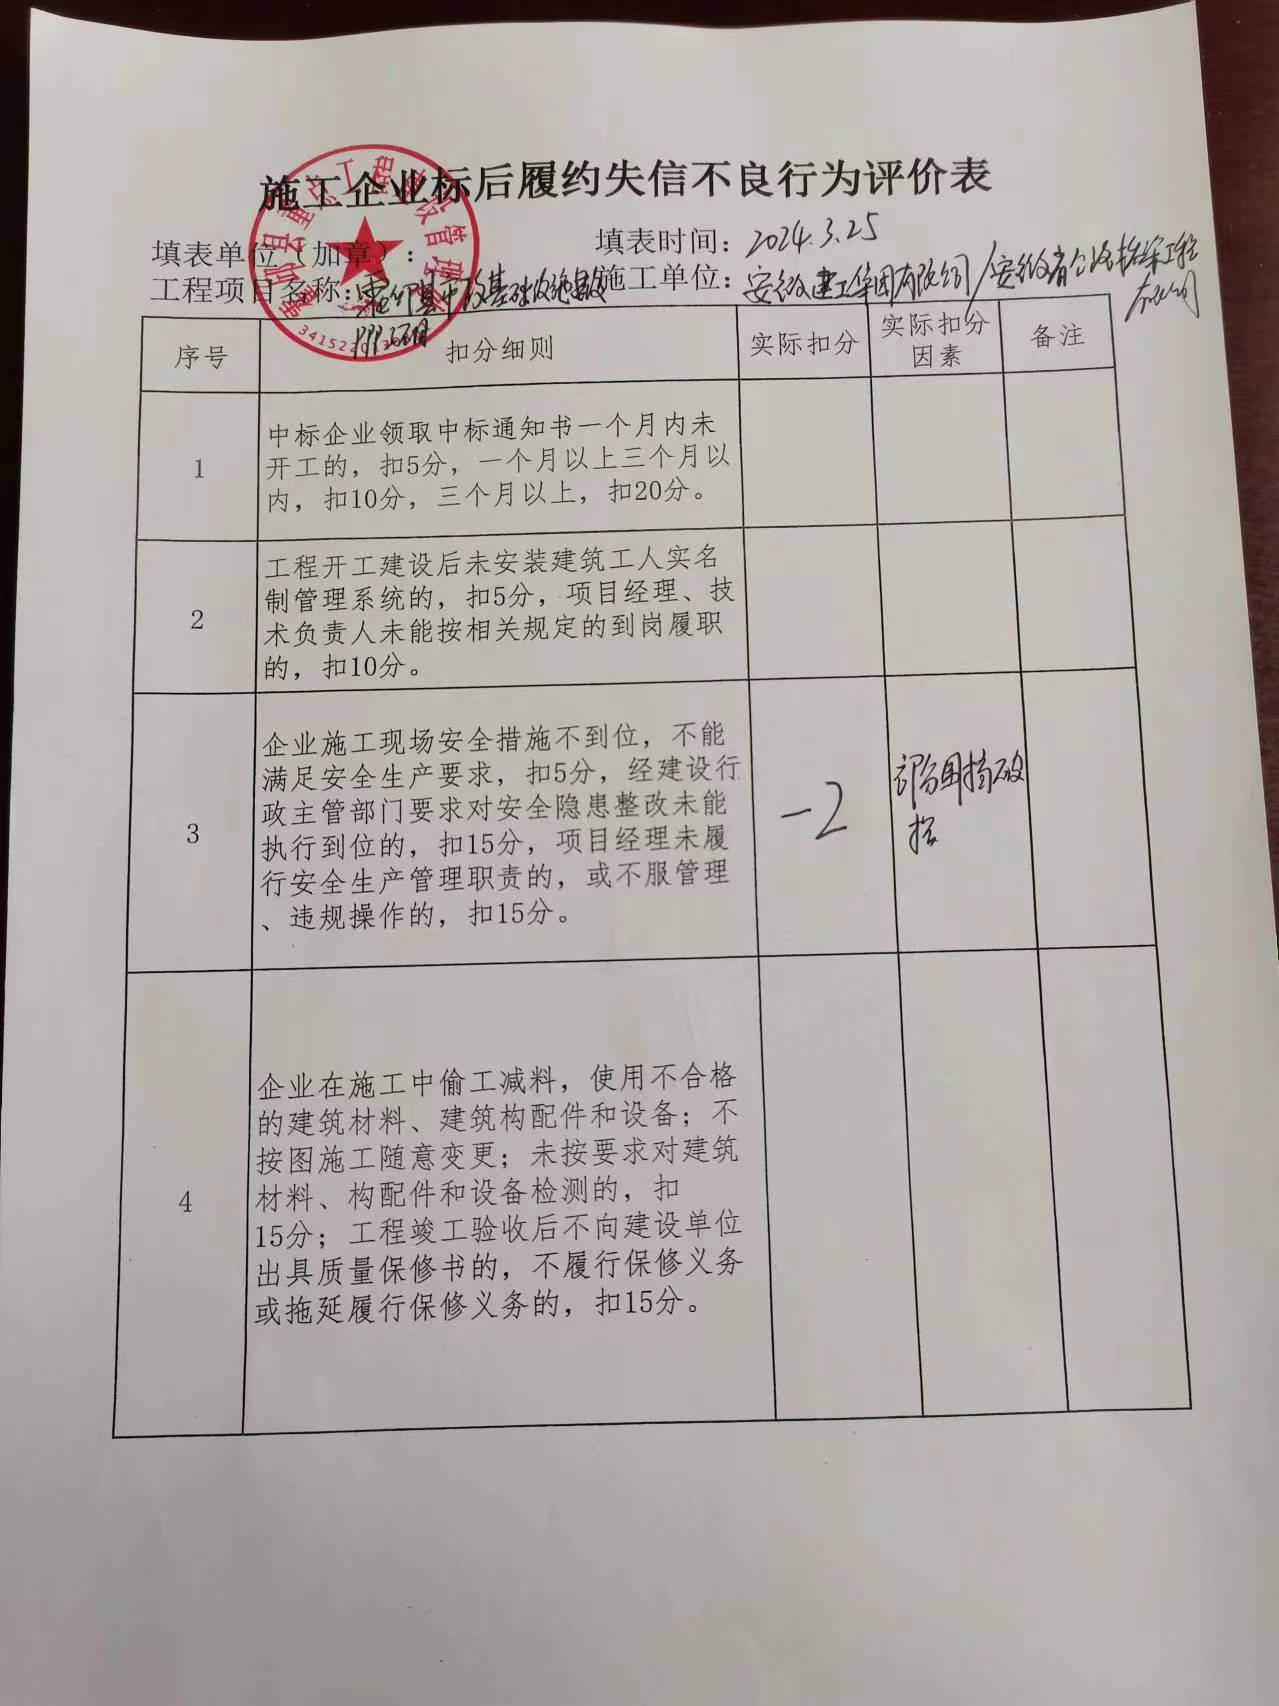 施工企业标后履约失信不良行为评价表
填表单位（加章）： 填表时间：2024.3.25
工程项目名称：霍邱县市政基础设施建设 施工单位：安徽建工集团有限公司/安徽省公路桥梁工程
PPP项目 有限公司
序号 扣分细则 实际扣分 实际扣分 备注
因素
1
中标企业领取中标通知书一个月内未
开工的，扣5分，一个月以上三个月以
内，扣10分，三个月以上，扣20分。
2
工程开工建设后未安装建筑工人实名
制管理系统的，扣5分，项目经理、技
术负责人未能按相关规定的到岗履职
的，扣10分。
3
企业施工现场安全措施不到位，不能
满足安全生产要求，扣5分，经建设行
政主管部门要求对安全隐患整改未能
执行到位的，扣15分，项目经理未履
行安全生产管理职责的，或不服管理
、违规操作的，扣15分。
-2
部分围挡破
损
4
企业在施工中偷工减料，使用不合格
的建筑材料、建筑构配件和设备；不
按图施工随意变更；未按要求对建筑
材料、构配件和设备检测的，扣
15分；工程竣工验收后不向建设单位
出具质量保修书的，不履行保修义务
或拖延履行保修义务的，扣15分。